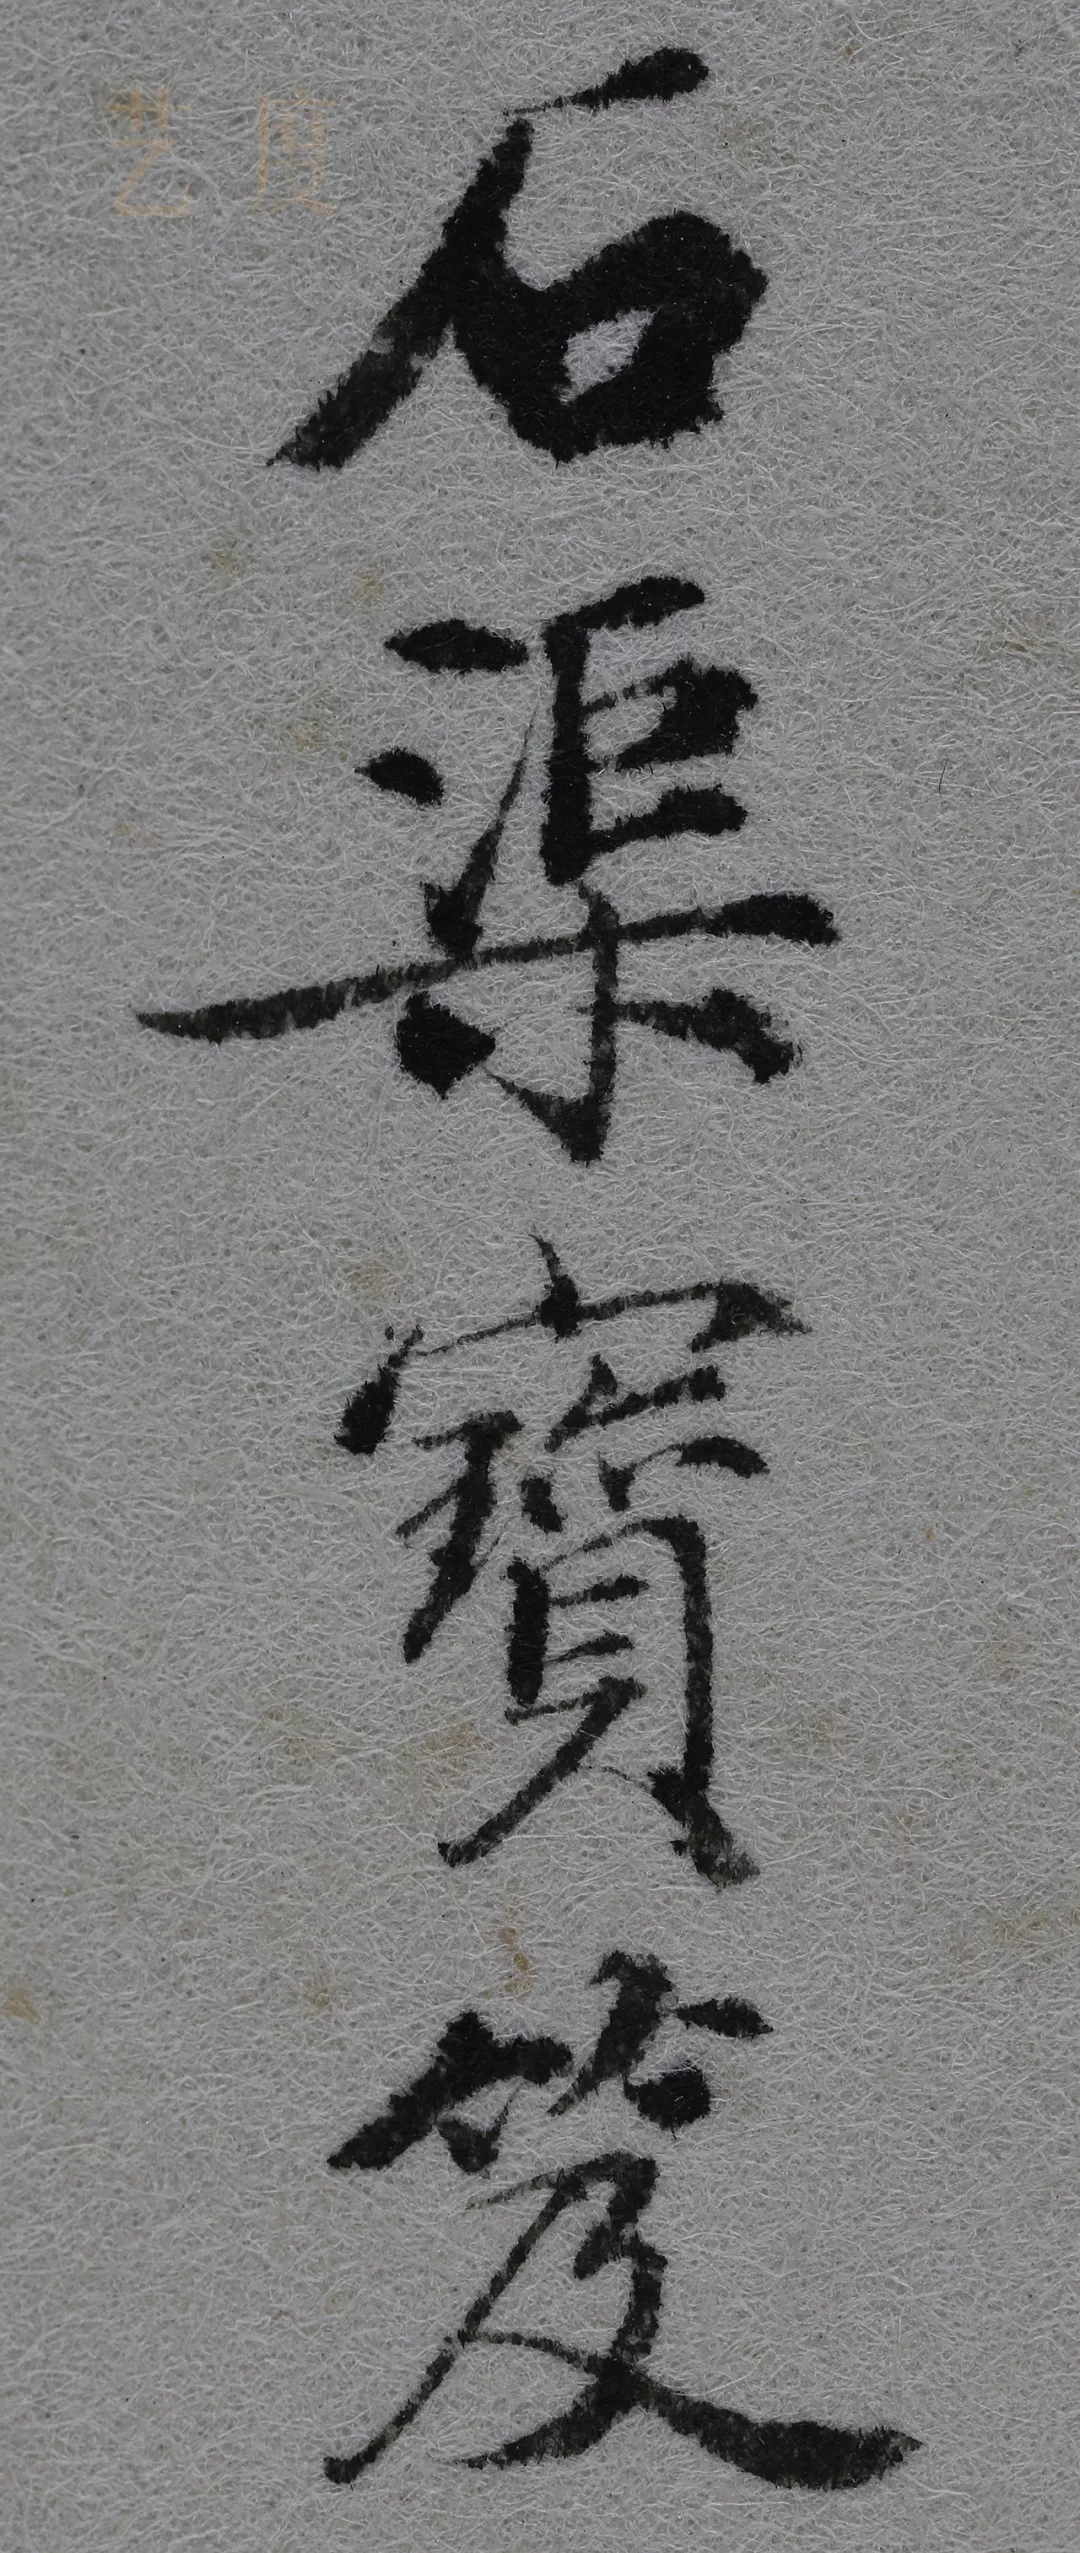 艺度
石渠寶笈